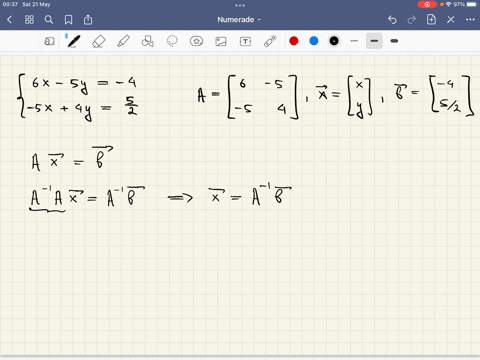 00:37 Sat 21 May
97%
Numerade
6x - 5y = -4
-5x + 4y = 5/2
A = [6 -5; -5 4], x⃗ = [x; y], b⃗ = [-4; 5/2]
A x⃗ = b⃗
A⁻¹ A x⃗ = A⁻¹ b⃗ ⟹ x⃗ = A⁻¹ b⃗